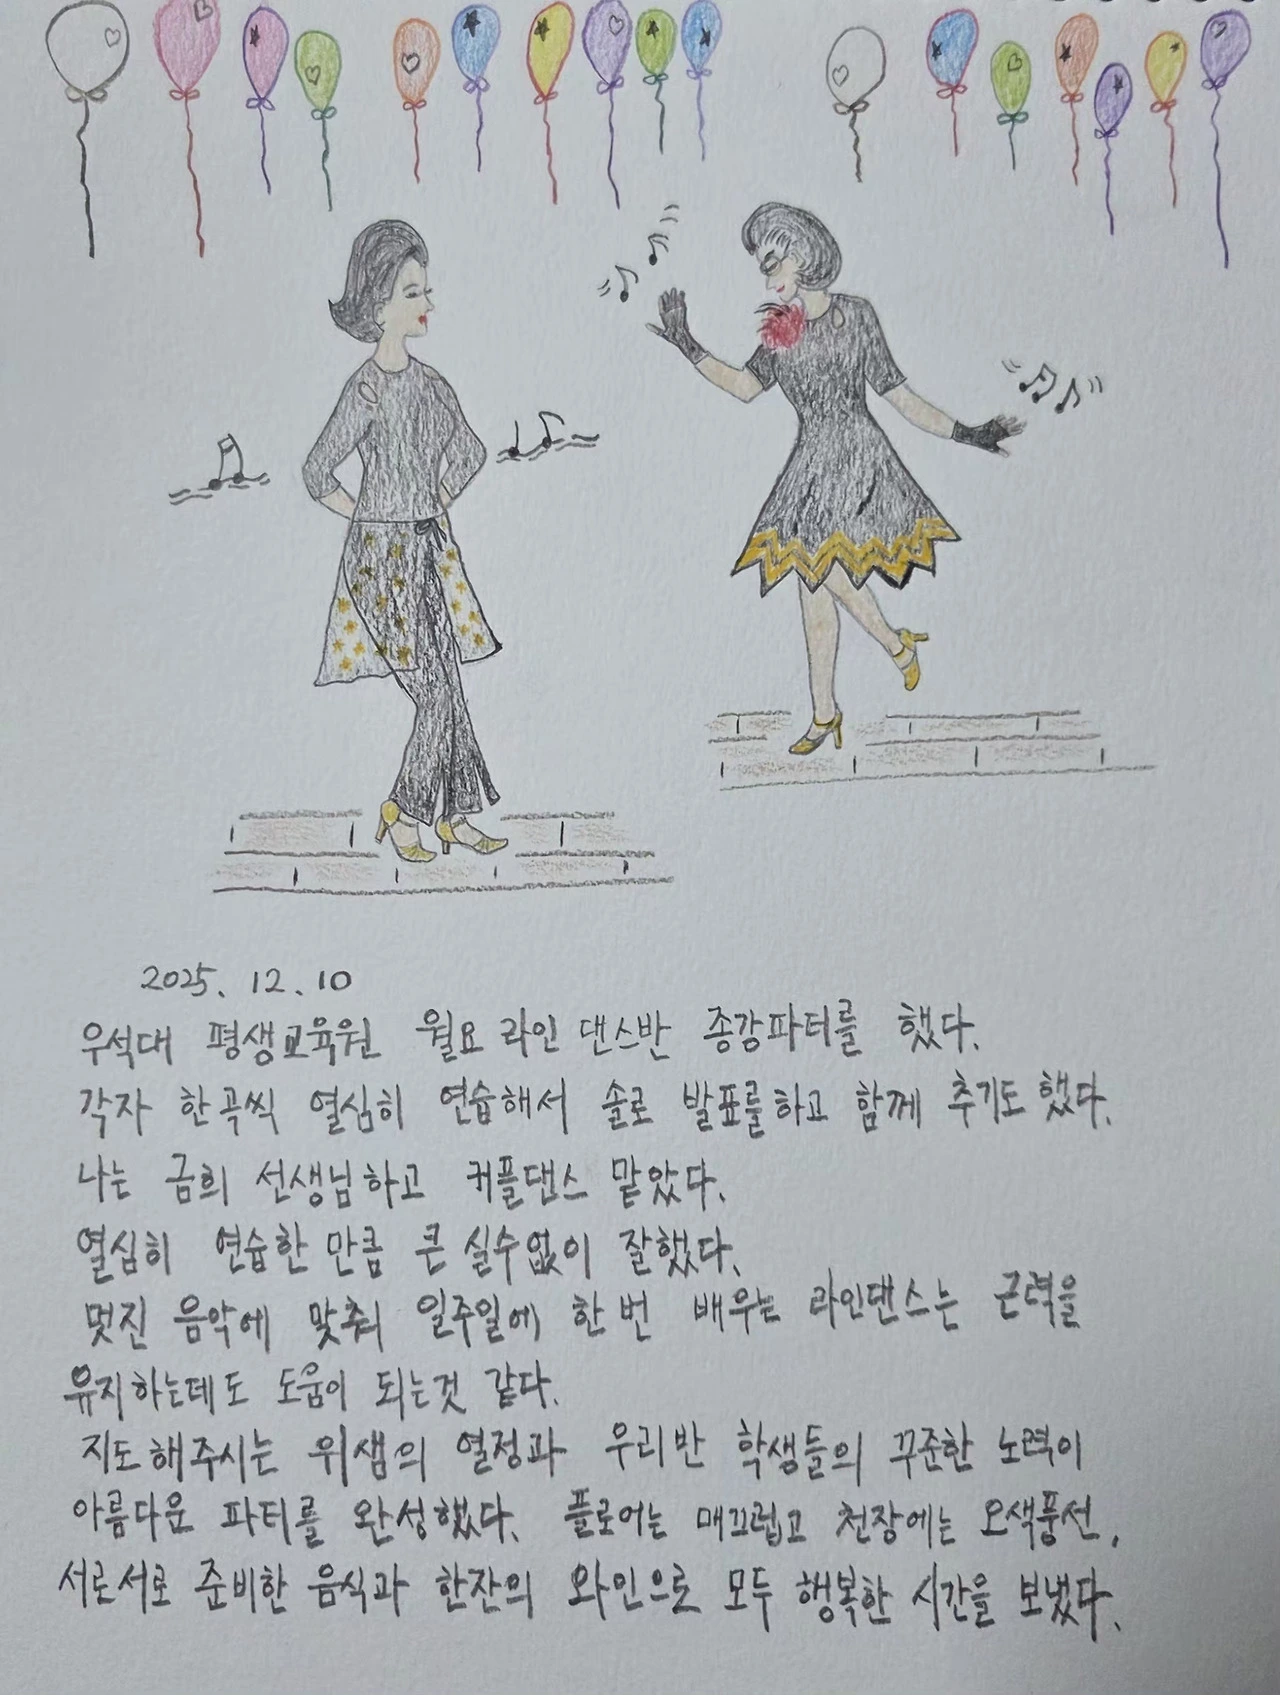 2025. 12. 10
우석대 평생교육원 월요 라인 댄스반 종강파티를 했다.
각자 한곡씩 열심히 연습해서 솔로 발표를하고 함께 추기도 했다.
나는 금희 선생님하고 커플댄스 맡았다.
열심히 연습한 만큼 큰 실수없이 잘했다.
멋진 음악에 맞춰 일주일에 한번 배우는 라인댄스는 근력을
유지하는데도 도움이 되는것 같다.
지도해주시는 위샘의 열정과 우리반 학생들의 꾸준한 노력이
아름다운 파티를 완성했다. 플로어는 매끄럽고 천장에는 오색풍선,
서로서로 준비한 음식과 한잔의 와인으로 모두 행복한 시간을 보냈다.